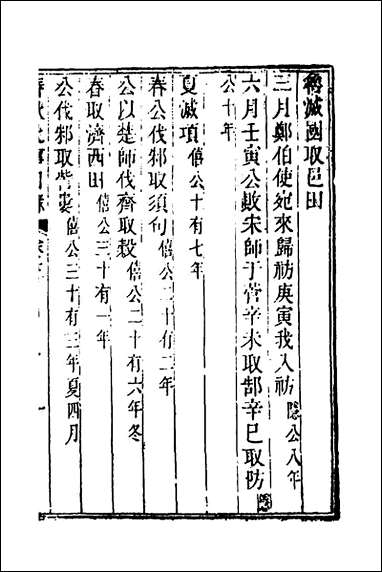 魯滅國取邑田
三月鄭伯使宛來歸祊庚寅我入祊隱公八年
六月壬寅公敗宋師于菅辛未取郜辛巳取防隱
公十年
夏滅項僖公十有七年
春公伐邾取須句僖公二十有二年
公以楚師伐齊取穀僖公二十有六年冬
春取濟西田僖公三十有一年
公伐邾取訾婁僖公三十有三年夏四月
春秋比事目錄